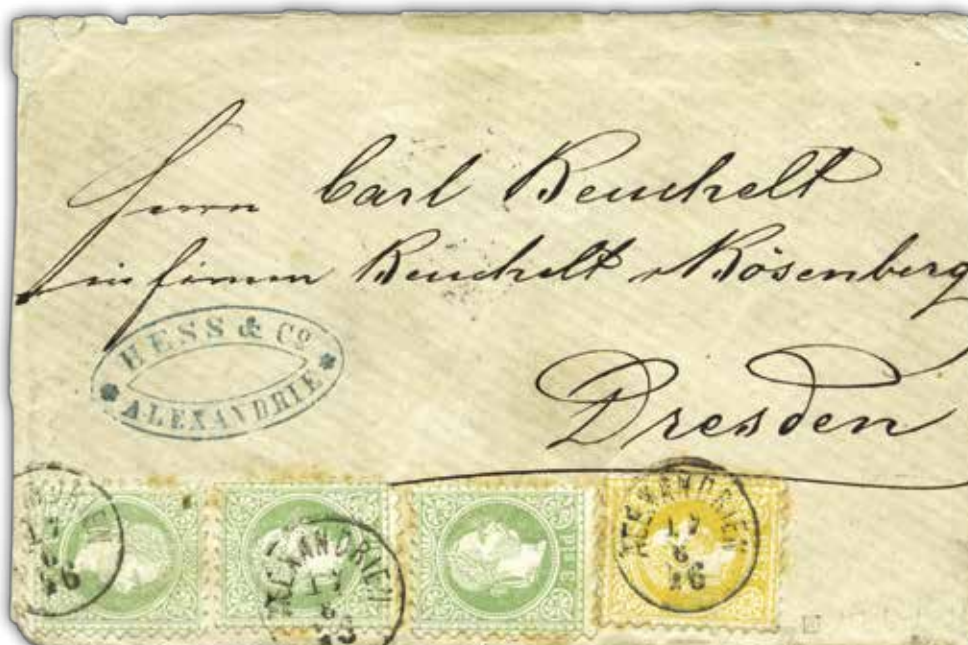 Herrn Carl Reuchelt
in Firma Reuchelt & Rösenberg
HESS & Co
ALEXANDRIE
Dresden
ALEXANDRIEN
17
6
76
ALEXANDRIEN
17
6
ALEXANDRIEN
17
6
76